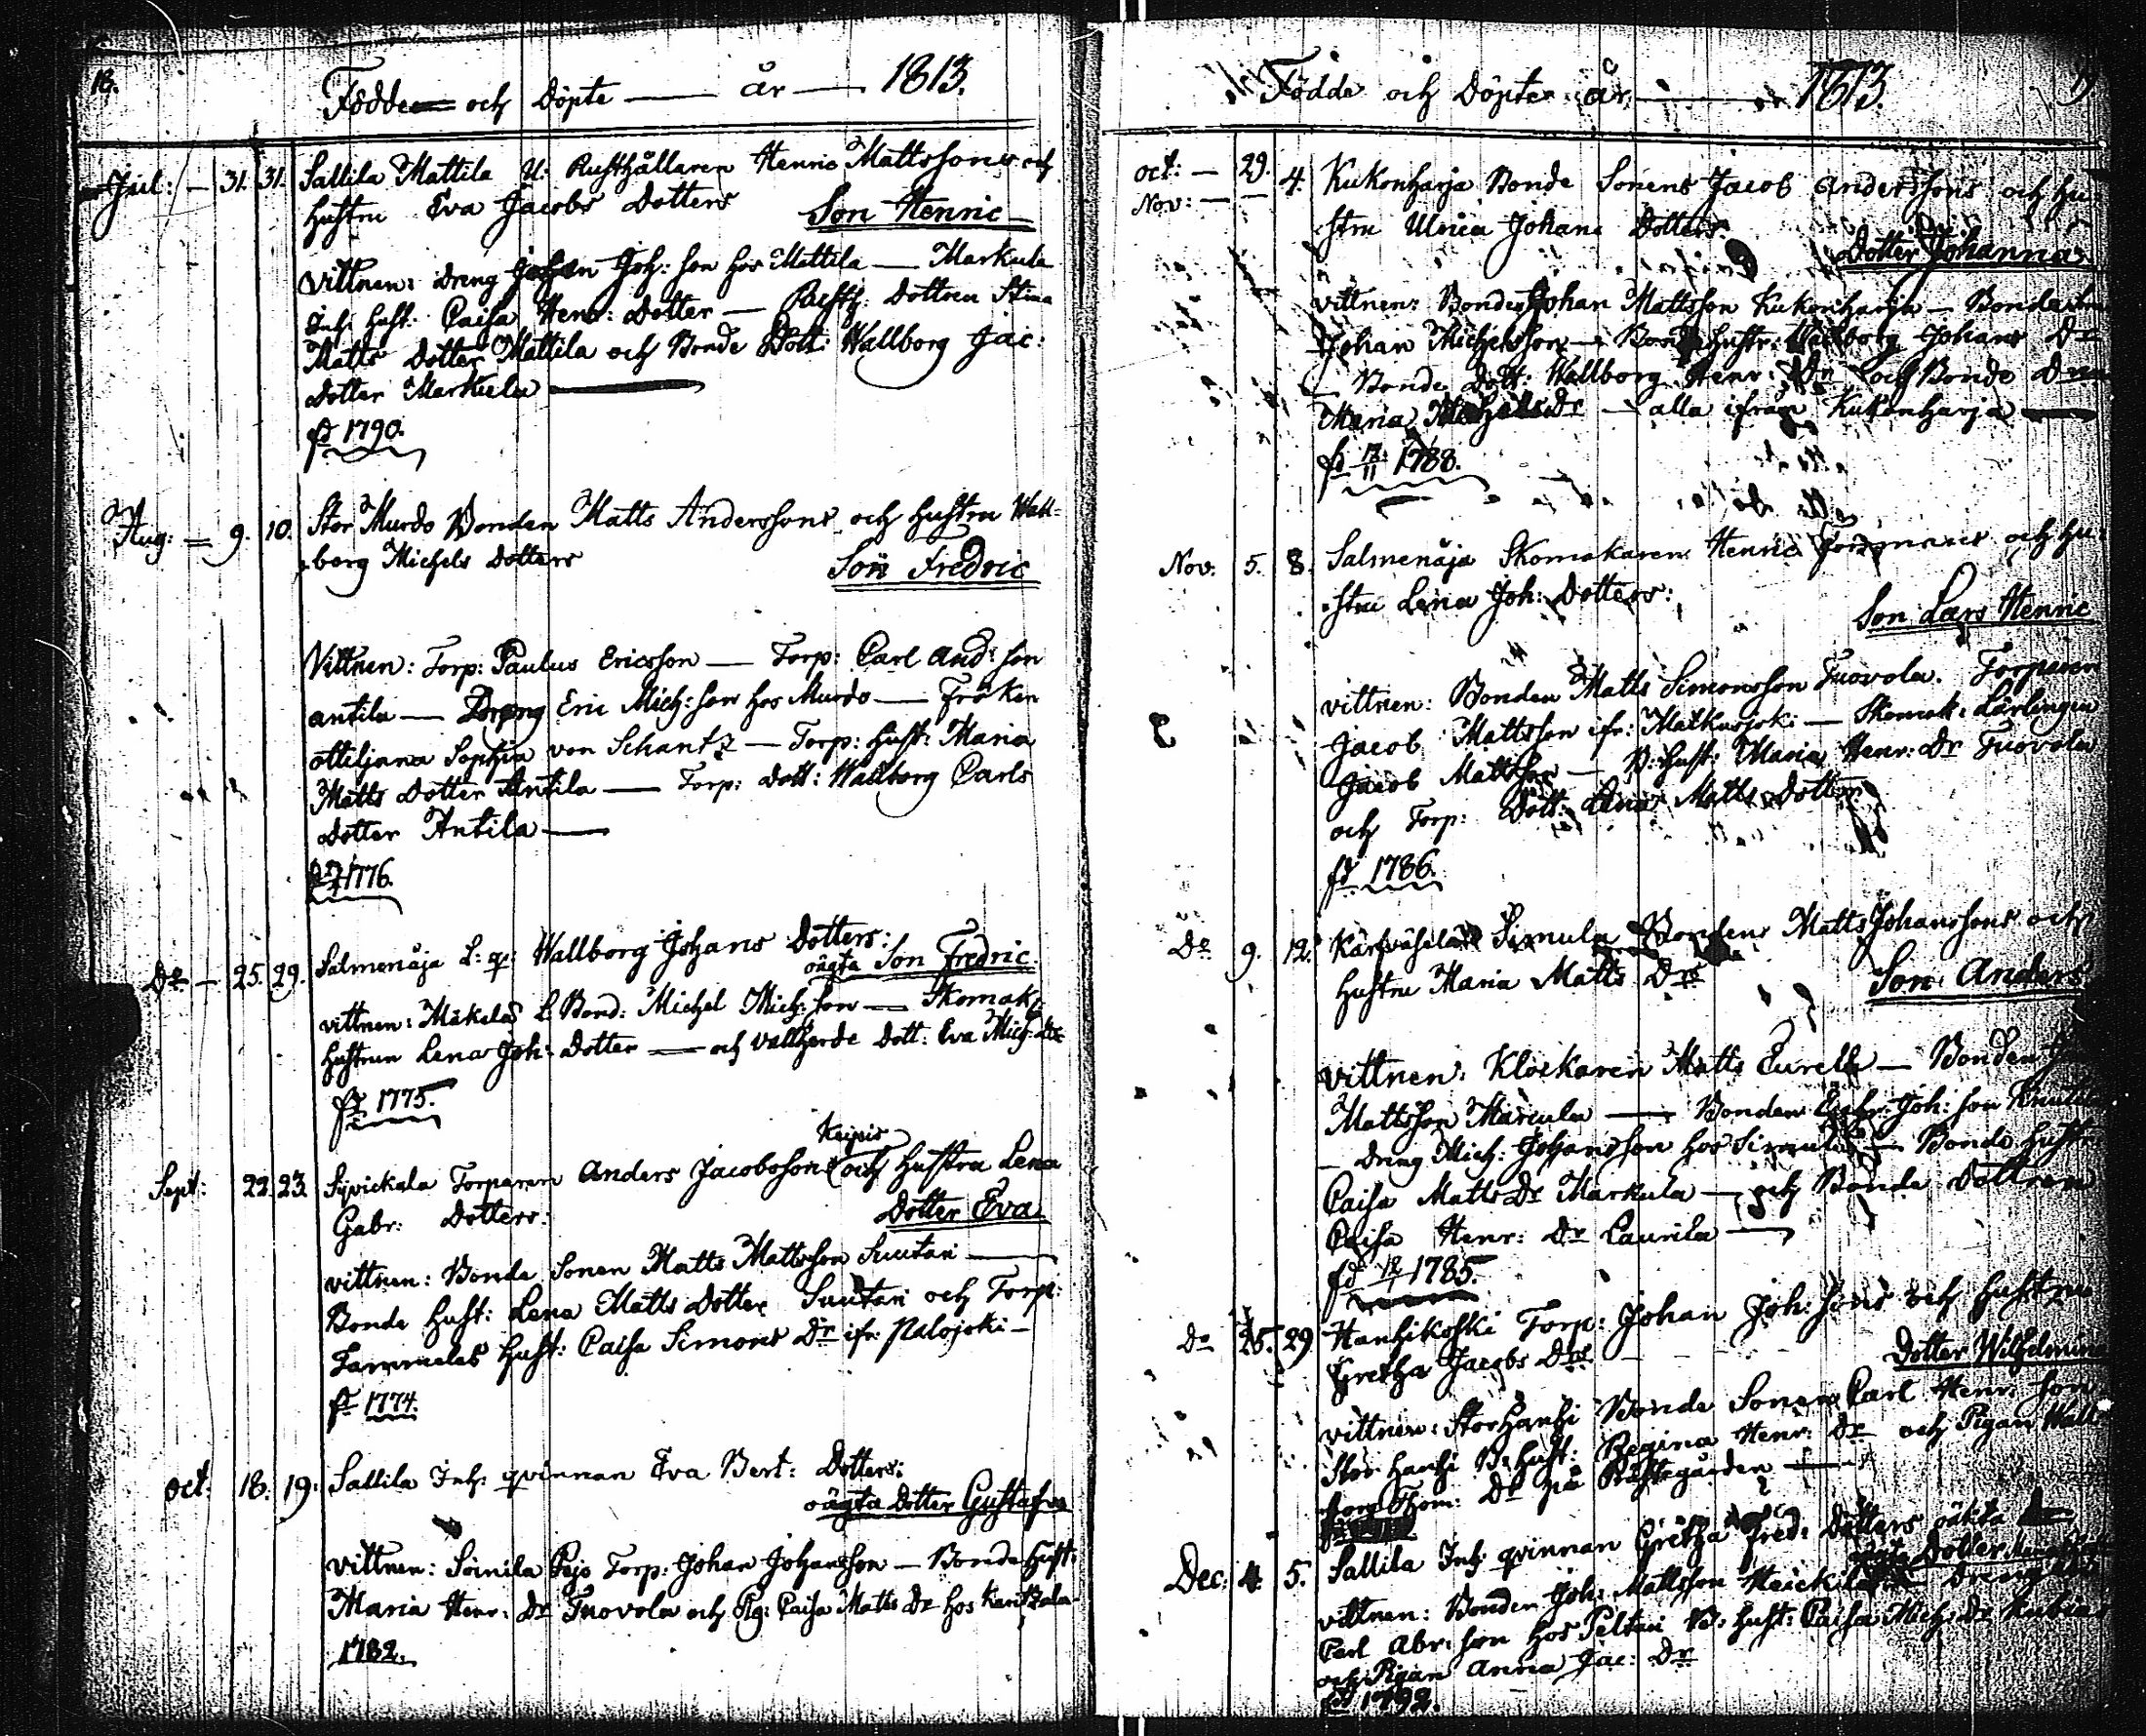 18.
Födde och Döpte — år — 1813.
Jul: — 31. 31. Sallila Mattila U. Rusthållaren Henric Mattssons och
hustru Eva Jacobs Dotters Son Henric
Vittnen: Dreng Johan Joh: son hos Mattila — Markula
Inh: hust: Caisa Henr: Dotter — Dottren Stina
Matts Dotter Mattila och Bonde Dott: Wallborg Jac:
Dotter Markula —
fd 1790.
Aug: — 9. 10. Stor Murdo Bonden Matts Anderssons och hustru Wall-
borg Michels Dotters Son Fredric
Vittnen: Torp: Paulus Ericsson — Torp: Carl And: son
Antila — Dreng Eric Mich: son hos Murdo — Fröken
Ottiljana Sophia von Schantz — Torp: hust: Maria
Matts Dotter Antila — Torp: Dott: Wallborg Carls
Dotter Antila —
1776.
Do — 25. 29. Salmenåja L: q: Wallborg Johans Dotters:
oägta Son Fredric.
vittnen: Mäkelas L. Bond: Michel Mich: son — Skomak:
hustrun Lena Joh: Dotter — och vallherde Dott: Eva Mich: Dr
fd 1775.
Keipis
Sept: 22. 23. Syvickala Torparen Anders Jacobsons och hustru Lena
Gabr: Dotters: Dotter Eva
vittnen: Bonde Sonen Matts Mattsson Suutari —
Bonde hust: Lena Matts Dotter Suutari och Torp:
Tammelas hust: Caisa Simons Dr ifr: Palojoki —
fd 1774.
Oct: 18. 19. Sallila Inh: qvinnan Eva Bert: Dotters:
oägta Dotter Gustafva
vittnen: Soinila Torp: Johan Johansson — Bonde Hust:
Maria Henr: Dr Tuovola och Pig: Caisa Matts Dr hos
1782.
Födde och Döpte år — 1813.
Oct: — 29.
Nov: — 4. Kukonharja Bonde Sonens Jacob Anderssons och hu-
stru Ulrica Johans Dotters. Dotter Johanna
vittnen: Bonden Johan Mattsson Kukonharja —
Johan Michelsson — Bonde hustr: Wallborg Johans Dr
— Bonde Dott: Wallborg Henr: Dr och Bonde
Maria Dr — alla ifrån Kukonharja —
fd 12/11 1788.
Nov: 5. 8. Salmenåja Skomakaren Henric och hu-
stru Lena Joh: Dotters: Son Lars Henric
vittnen: Bonden Matts Simonsson Tuovola. Torparen
Jacob Mattsson ifr: — Skomak: Lärlingen
Jacob Mattsson — B: hust: Maria Henr: Dr Tuovola
och Torp: Dott: Lena Matts Dotter
fd 1786.
Do 9. 12. Simula Bondens Matts Johanssons och
hustru Maria Matts Drs Son Anders
vittnen: Klockaren Matts Eurelli — Bonden
Mattsson Marcula — Bonden Joh: son
— Dreng Mich: Johansson hos Simula — Bonde hustr:
Caisa Matts Dr Markula — och Bonde Dottren
Caisa Henr: Dr Laurila —
fd 1785.
Do 25. 29. Hanhikoski Torp: Johan Joh: sons och hustru
Gretha Jacobs Drs Dotter Wilhelmina
vittnen: Storhanhi Bonde Sonen Carl Henr: son
Stor hanhi B: hust: Regina Henr: Dr och Pigan Wall-
borg Thom: Dr på Prästegården —
Dec: 4. 5. Sallila Inh: qvinnan Gretha Fred: Dotters oäkta
Dotter
vittnen: Bonden Joh: Mattsson Heickilä
Carl Abr: son hos Peltari B: hust: Caisa Mich: Dr
och Pigan Anna Jac: Dr
1792.